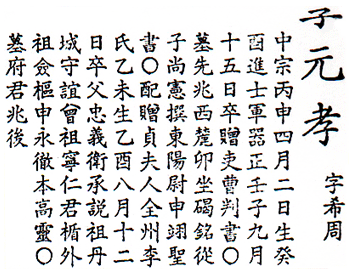 子元孝
字希周
中宗丙申四月二日生癸
酉進士軍器正壬子九月
十五日卒贈吏曹判書○
墓先兆西麓卯坐碣銘從
子尚憲撰東陽尉申翊聖
書○配贈貞夫人全州李
氏乙未生乙酉八月十二
日卒父忠義衛承說祖丹
城守誼曾祖寧仁君楯外
祖僉樞申永徹本高靈○
墓府君兆後